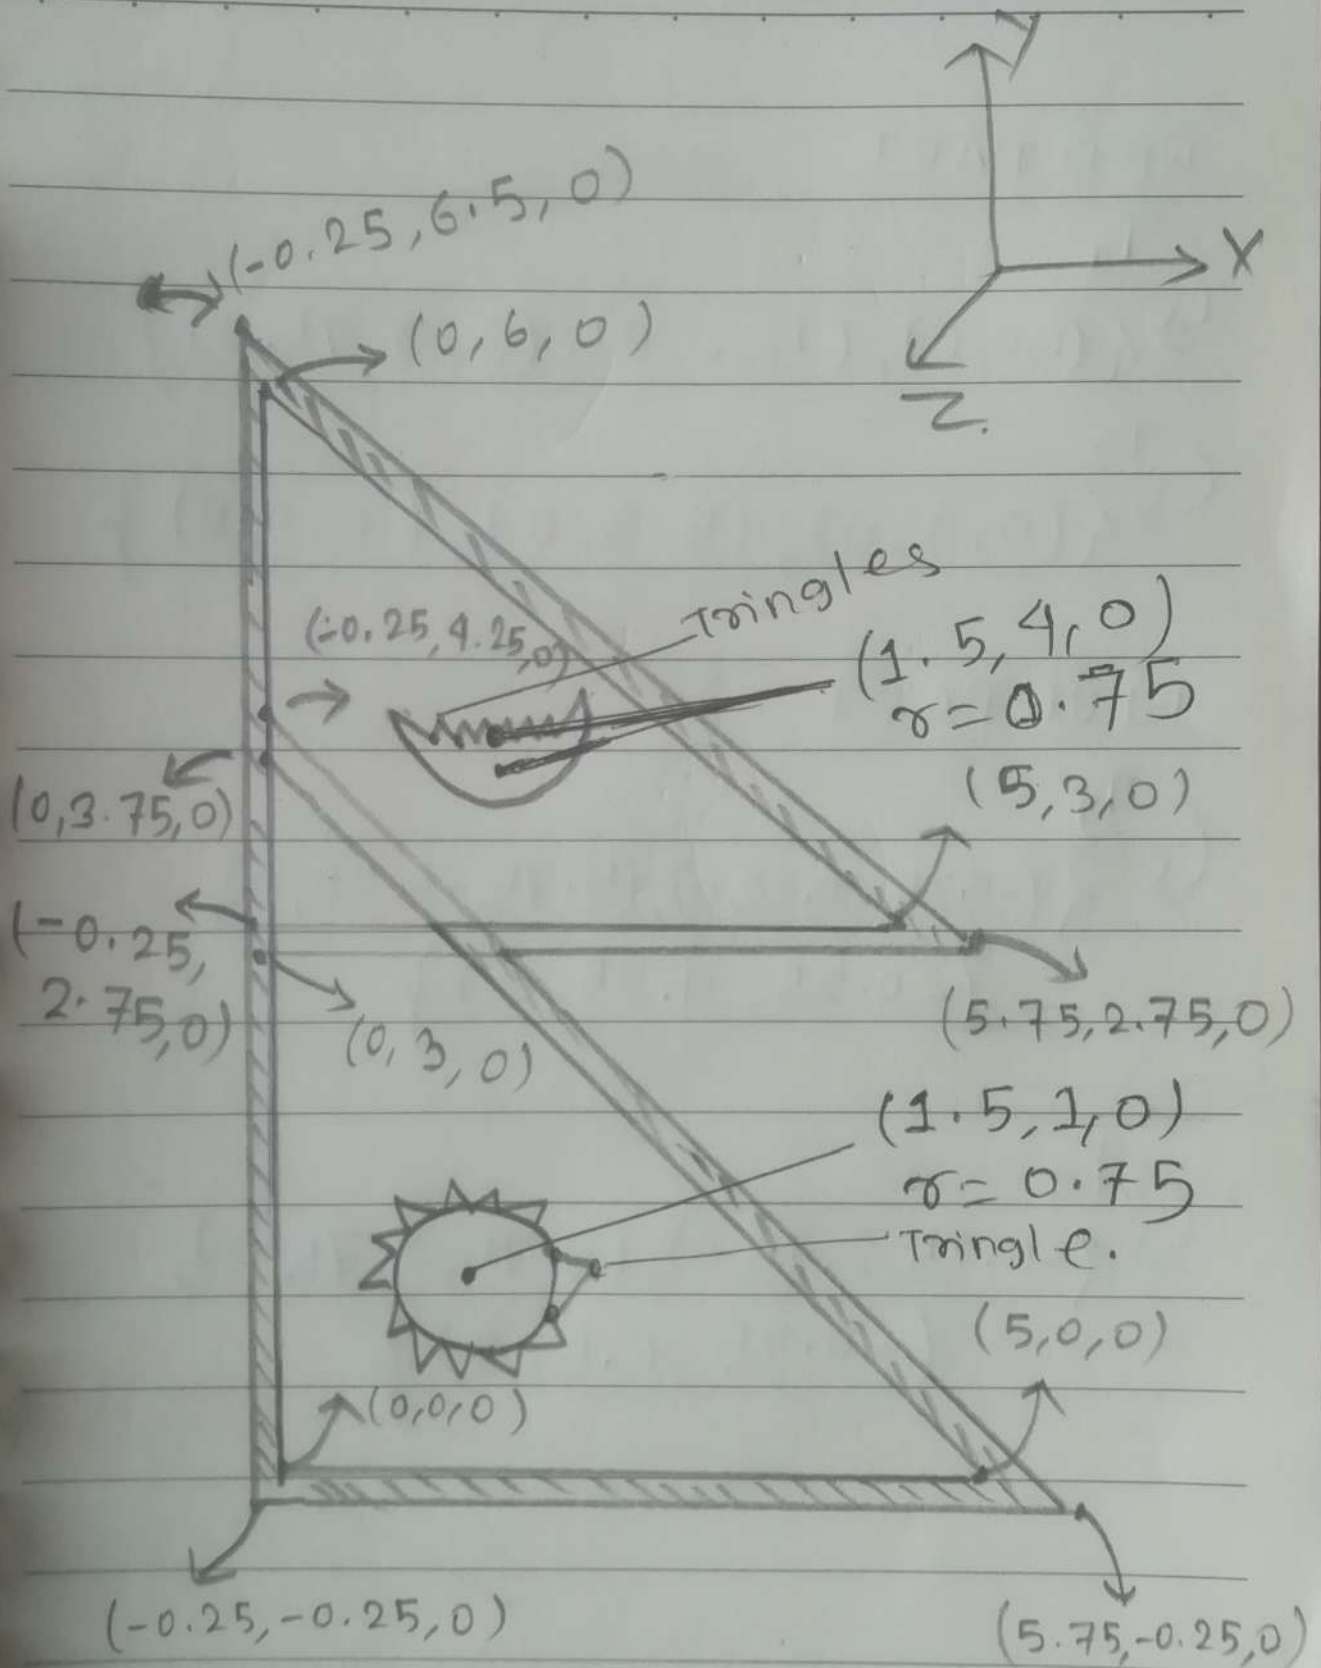 y
X
Z.
(-0.25,6.5,0)
(0,6,0)
Tringles
(-0.25,4.25,0)
(1.5,4,0)
r=0.75
(5,3,0)
(0,3.75,0)
(-0.25,
2.75,0)
(0,3,0)
(5.75,2.75,0)
(1.5,1,0)
r=0.75
Tringle.
(5,0,0)
(0,0,0)
(-0.25,-0.25,0)
(5.75,-0.25,0)